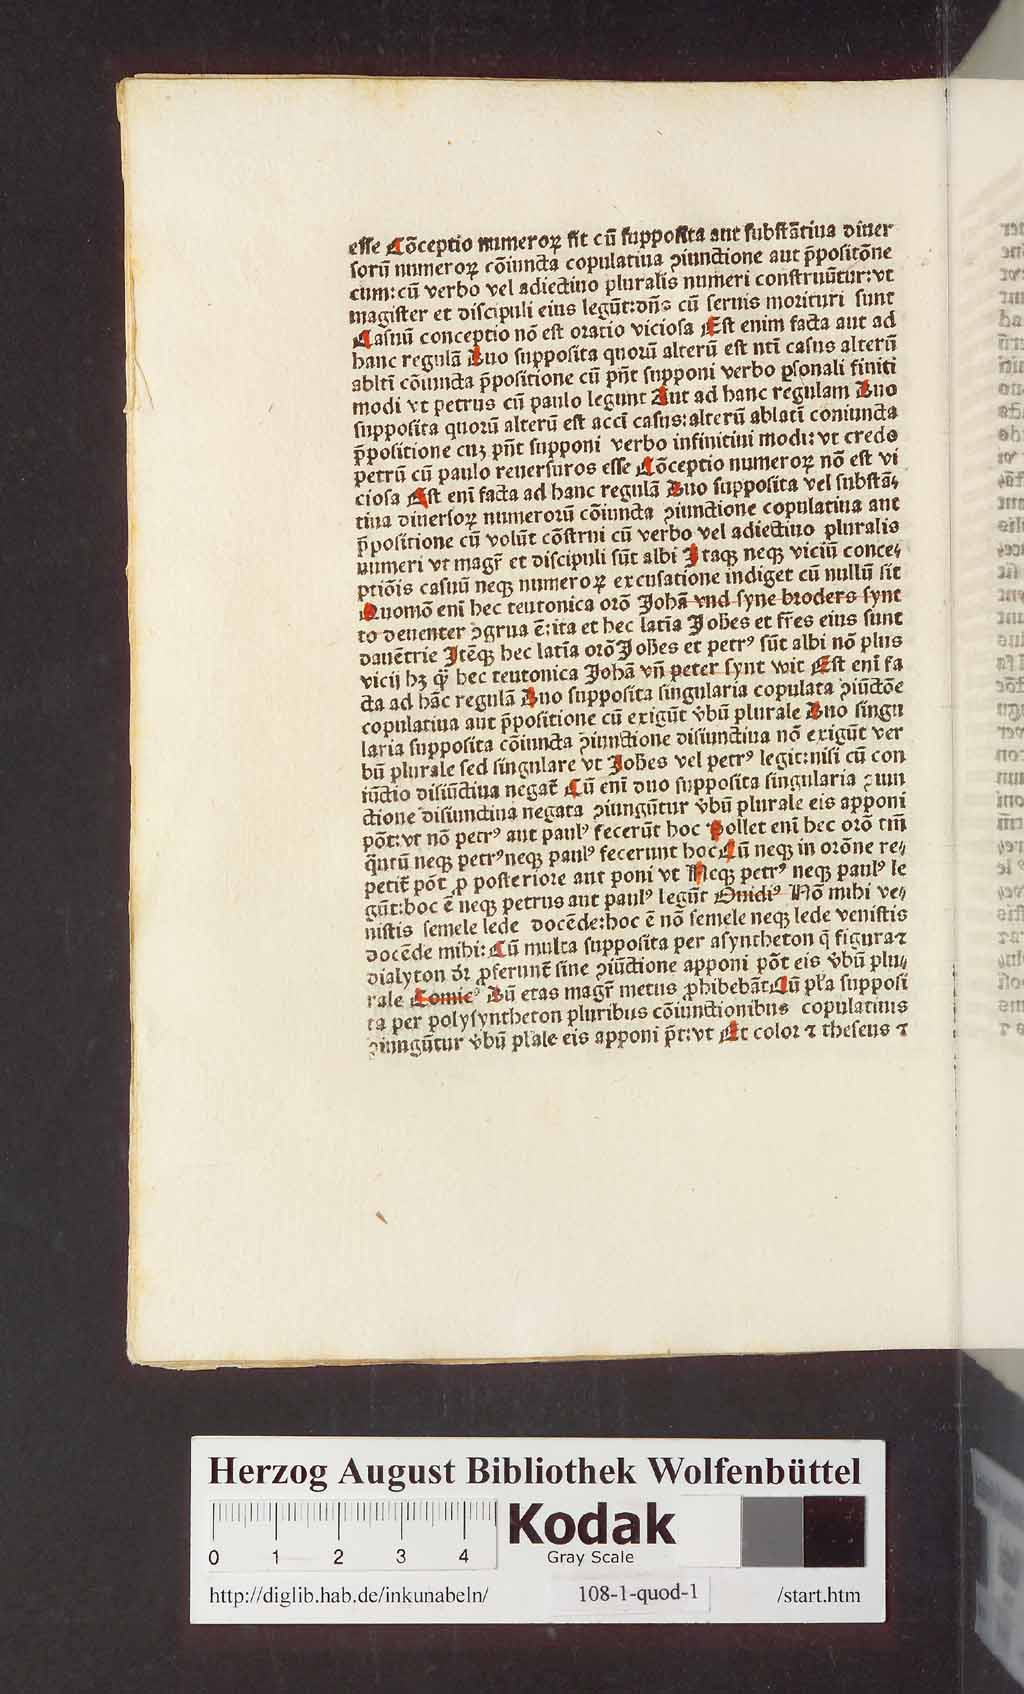 esse Cōceptio numeroꝝ fit cū supposita aut substātiua diuer
sorū numeroꝝ cōiuncta copulatiua ꝯiunctione aut p̄positōne
cum: cū verbo vel adiectiuo pluralis numeri construūtur: vt
magister et discipuli eius legūt: dn̄s cū seruis morituri sunt
Casuū conceptio nō est oratio viciosa Est enim facta aut ad
hanc regulā Duo supposita quorū alterū est nt̄i casus alterū
ablt̄i cōiuncta p̄positione cū pn̄t supponi verbo ꝑsonali finiti
modi vt petrus cū paulo legunt Aut ad hanc regulam Duo
supposita quorū alterū est acc̄i casus: alterū ablat̄i coniuncta
p̄positione cuꝫ pn̄t supponi verbo infinitiui modi: vt credo
petrū cū paulo reuersuros esse Cōceptio numeroꝝ nō est vi
ciosa Est enī facta ad hanc regulā Duo supposita vel substā⸗
tiua diuersoꝝ numerorū cōiuncta ꝯiunctione copulatiua aut
p̄positione cū volūt cōstrui cū verbo vel adiectiuo pluralis
numeri vt magr̄ et discipuli sūt albi Itaqꝫ neqꝫ viciū conce⸗
ptiōis casuū neqꝫ numeroꝝ excusatione indiget cū nullū sit
Quomō enī hec teutonica orō Johā vnd syne broders synt
to deuenter ꝯgrua ē: ita et hec latīa Joħes et fr̄es eius sunt
dauētrie Itēqꝫ hec latīa orō Joħes et petrꝰ sūt albi nō plus
vicij hꝫ qͣꝫ hec teutonica Johā vn̄ peter synt wit Est enī fa
cta ad hāc regulā Duo supposita singularia copulata ꝯiūctōe
copulatiua aut p̄positione cū exigūt v̄bū plurale Duo singu
laria supposita cōiuncta ꝯiunctione disiunctiua nō exigūt ver
bū plurale sed singulare vt Joħes vel petrꝰ legit: nisi cū con
iūctio disiūctiua negat̄ Cū enī duo supposita singularia ꝯiun
ctione disiunctiua negata ꝯiungūtur v̄bū plurale eis apponi
pōt: vt nō petrꝰ aut paulꝰ fecerūt hoc Pollet enī hec orō tm̄
q̄ntū neqꝫ petrꝰ neqꝫ paulꝰ fecerunt hoc Cū neqꝫ in orōne re⸗
petit̄ pōt ꝓ posteriore aut poni vt Neqꝫ petrꝰ neqꝫ paulꝰ le
gūt: hoc ē neqꝫ petrus aut paulꝰ legūt Ouidiꝰ Nō mihi ve⸗
nistis semele lede docēde: hoc ē nō semele neqꝫ lede venistis
docēde mihi: Cū multa supposita per asyntheton q̄ figura ⁊
dialyton dr̄ ꝓferunt̄ sine ꝯiūctione apponi pōt eis v̄bū plu⸗
rale Comicꝰ Dū etas magr̄ metus ꝓhibebāt Cū pl̄a supposi
ta per polysyntheton pluribus cōiunctionibus copulatiuis
ꝯiungūtur v̄bū pl̄ale eis apponi p̄t: vt Et color ⁊ theseus ⁊
Herzog August Bibliothek Wolfenbüttel
0 1 2 3 4
Kodak
Gray Scale
http://diglib.hab.de/inkunabeln/ 108-1-quod-1 /start.htm